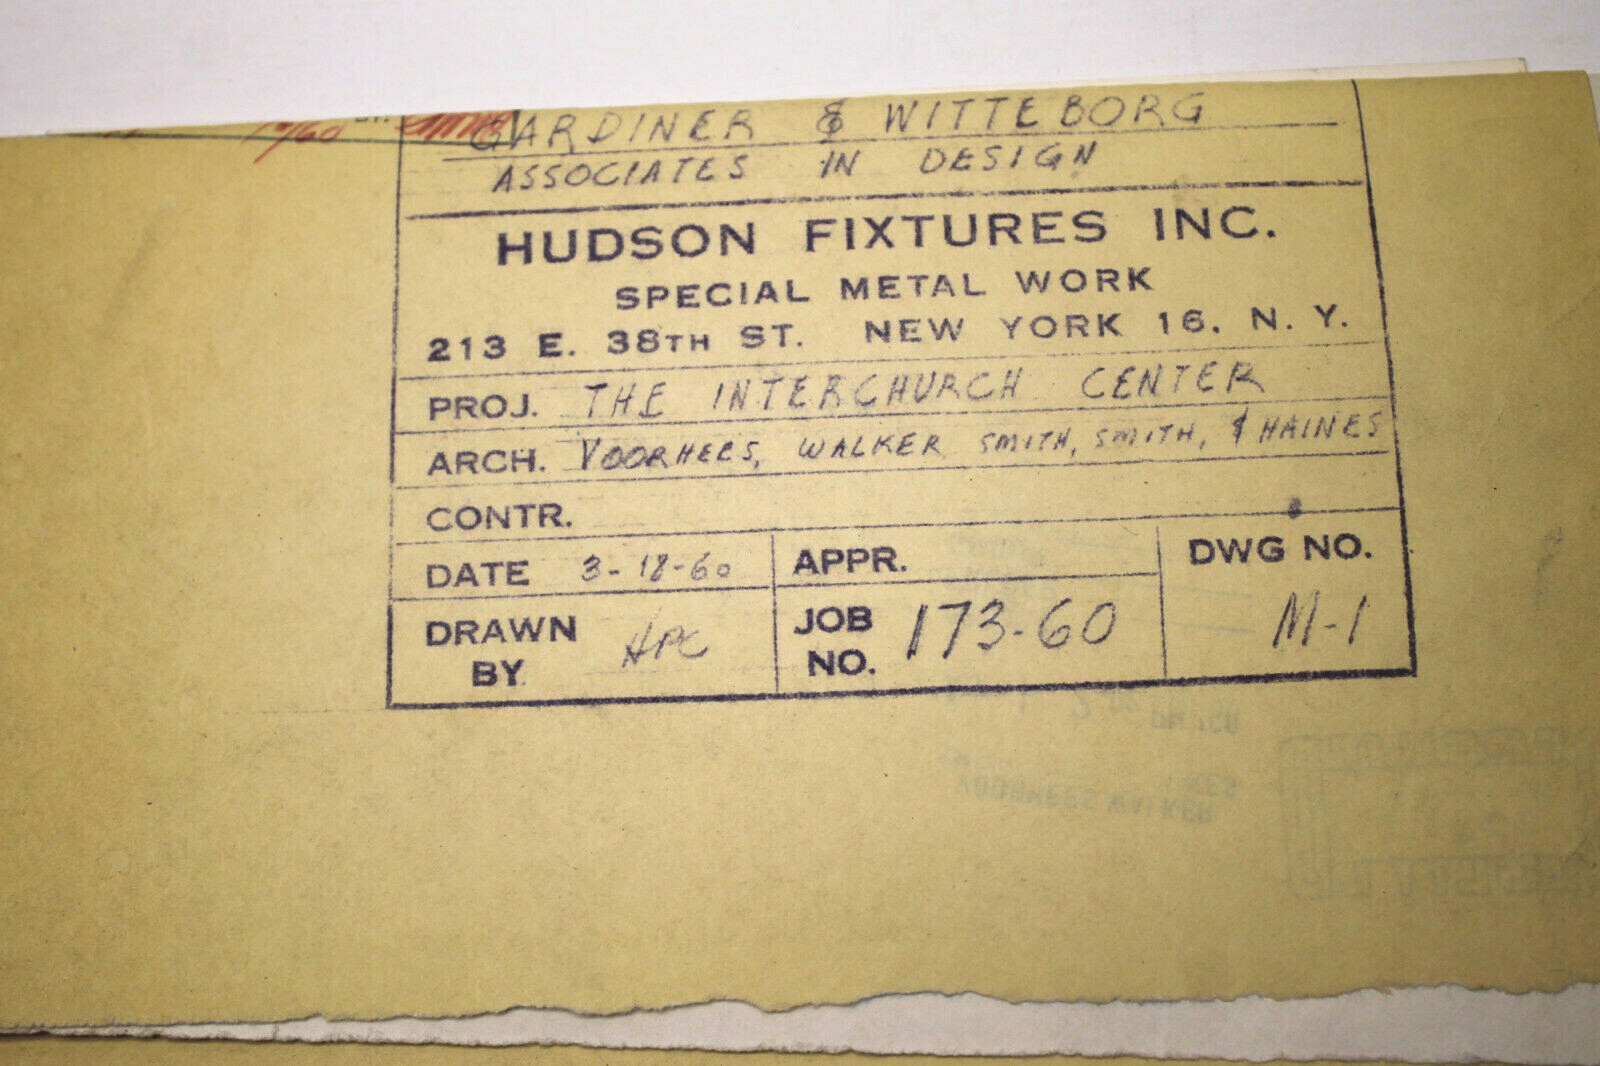 GARDINER & WITTEBORG
ASSOCIATES IN DESIGN
HUDSON FIXTURES INC.
SPECIAL METAL WORK
213 E. 38TH ST. NEW YORK 16, N. Y.
PROJ. THE INTERCHURCH CENTER
ARCH. VOORHEES, WALKER SMITH, SMITH, & HAINES
CONTR.
DATE 3-18-60 APPR. DWG NO.
DRAWN BY HPC JOB NO. 173-60 M-1
VOORHEES WALKER